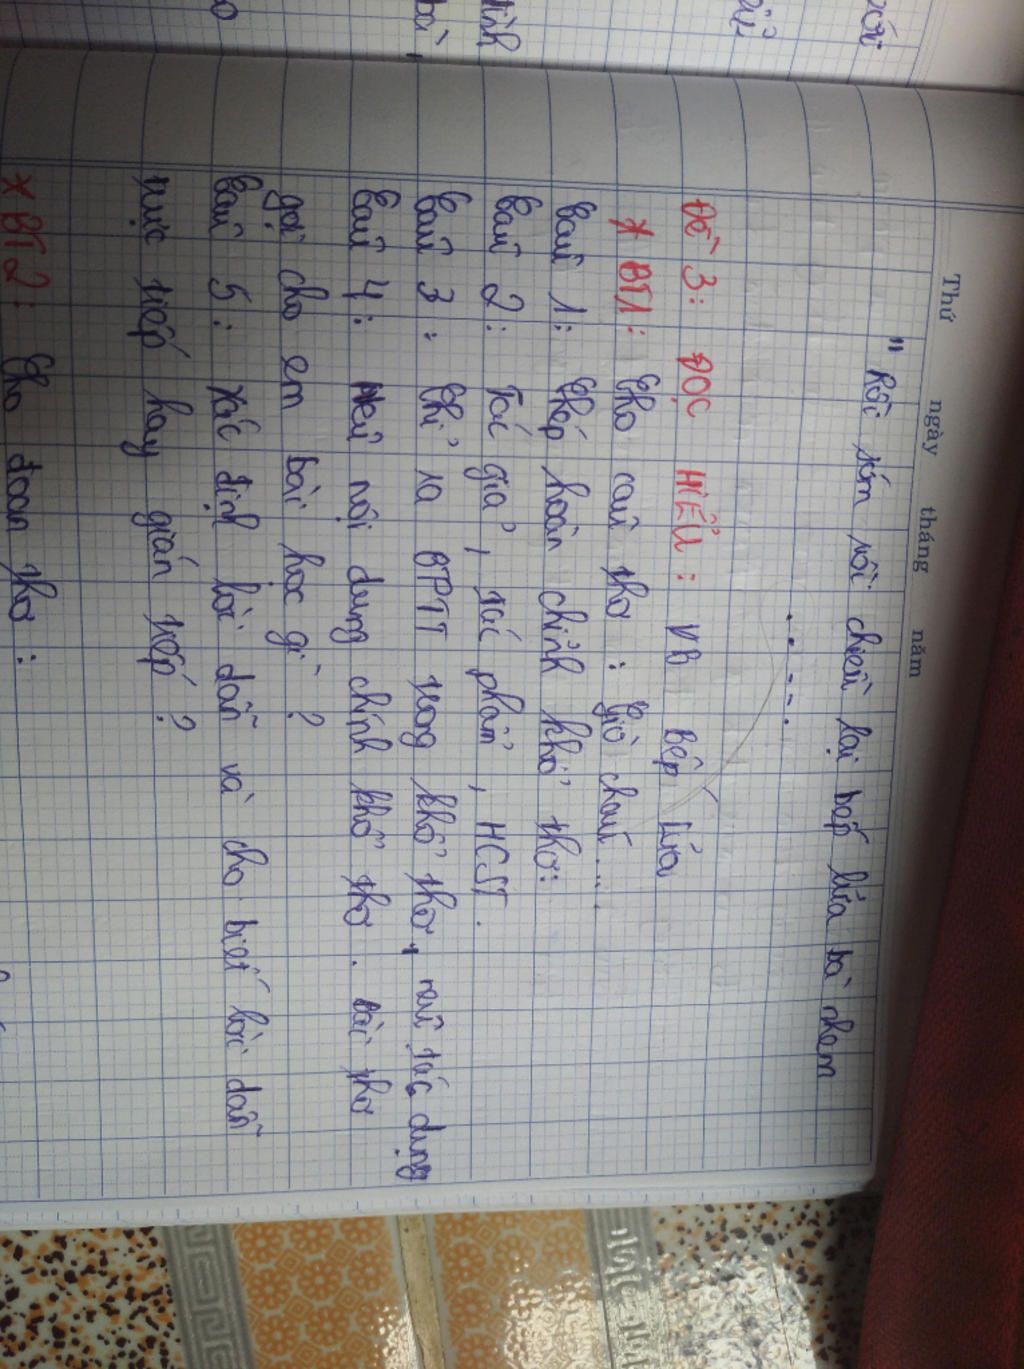 Thứ ngày tháng năm
"Rồi sớm rồi chiều lại bếp lửa bà nhem
......
Đề 3: ĐỌC HIỂU: VB Bếp lửa
* BT1: Cho câu thơ: Giờ cháu ....
Câu 1: Chép hoàn chỉnh khổ thơ:
Câu 2: Tác giả, tác phẩm, HCST.
Câu 3: Chỉ ra BPTT trong khổ thơ, nêu tác dụng
Câu 4: Nêu nội dung chính khổ thơ. Bài thơ
gợi cho em bài học gì?
Câu 5: Xác định lời dẫn và cho biết lời dẫn
trực tiếp hay gián tiếp?
* BT2: Cho đoạn thơ: